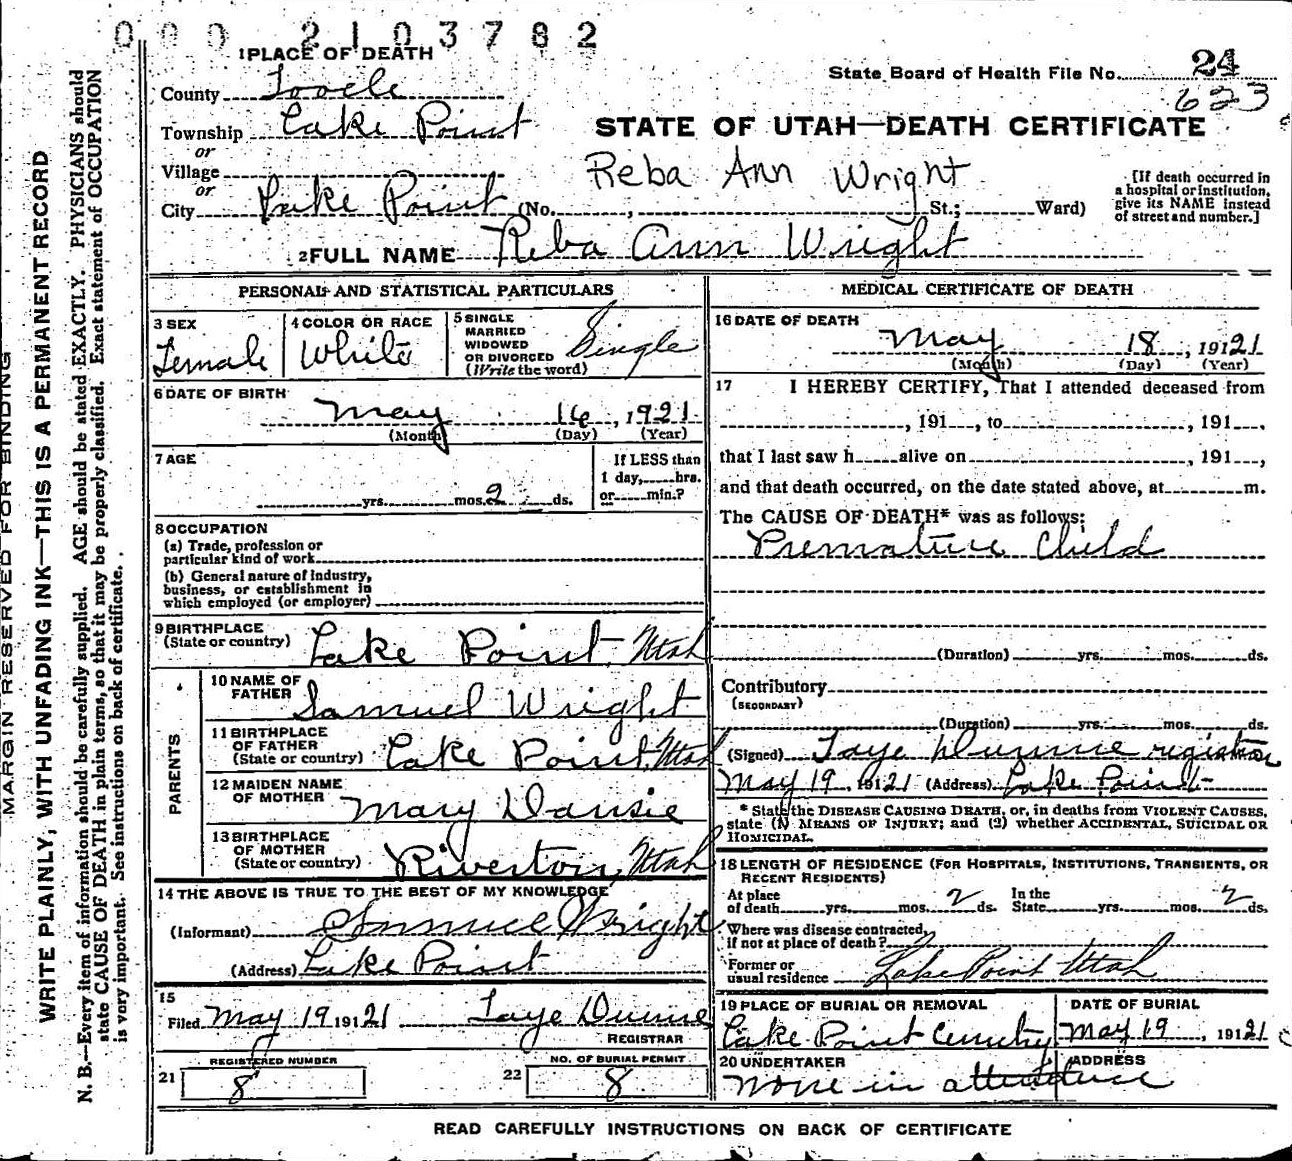 000 2103782
1 PLACE OF DEATH
State Board of Health File No. 24
623
County Tooele
Township Lake Point
or
Village
or
City Lake Point (No. , St.; Ward)
STATE OF UTAH—DEATH CERTIFICATE
Reba Ann Wright
[If death occurred in
a hospital or institution,
give its NAME instead
of street and number.]
2 FULL NAME Reba Ann Wright
PERSONAL AND STATISTICAL PARTICULARS
3 SEX
Female
4 COLOR OR RACE
White
5 SINGLE
MARRIED
WIDOWED
OR DIVORCED
(Write the word)
Single
6 DATE OF BIRTH
May 16, 1921
(Month) (Day) (Year)
7 AGE
yrs. mos. 2 ds.
If LESS than
1 day, hrs.
or min.?
8 OCCUPATION
(a) Trade, profession or
particular kind of work
(b) General nature of industry,
business, or establishment in
which employed (or employer)
9 BIRTHPLACE
(State or country) Lake Point, Utah
PARENTS
10 NAME OF
FATHER Samuel Wright
11 BIRTHPLACE
OF FATHER
(State or country) Lake Point, Utah
12 MAIDEN NAME
OF MOTHER Mary Dansie
13 BIRTHPLACE
OF MOTHER
(State or country) Riverton, Utah
14 THE ABOVE IS TRUE TO THE BEST OF MY KNOWLEDGE
(Informant) Samuel Wright
(Address) Lake Point
15
Filed May 19 19121 Faye Dunne
REGISTRAR
REGISTERED NUMBER
21 8
NO. OF BURIAL PERMIT
22 8
MEDICAL CERTIFICATE OF DEATH
16 DATE OF DEATH
May 18, 19121
(Month) (Day) (Year)
17 I HEREBY CERTIFY, That I attended deceased from
, 191 , to , 191 ,
that I last saw h alive on , 191 ,
and that death occurred, on the date stated above, at m.
The CAUSE OF DEATH* was as follows:
Premature Child
(Duration) yrs. mos. ds.
Contributory
(SECONDARY)
(Duration) yrs. mos. ds.
(Signed) Faye Dunne registrar
May 19, 19121 (Address) Lake Point
* State the DISEASE CAUSING DEATH, or, in deaths from VIOLENT CAUSES,
state (1) MEANS OF INJURY; and (2) whether ACCIDENTAL, SUICIDAL OR
HOMICIDAL.
18 LENGTH OF RESIDENCE (FOR HOSPITALS, INSTITUTIONS, TRANSIENTS, OR
RECENT RESIDENTS)
At place
of death yrs. mos. 2 ds.
In the
State yrs. mos. 2 ds.
Where was disease contracted,
if not at place of death?
Former or
usual residence Lake Point Utah
19 PLACE OF BURIAL OR REMOVAL
Lake Point Cemetry
DATE OF BURIAL
May 19, 19121
20 UNDERTAKER
ADDRESS
none in attendance
READ CAREFULLY INSTRUCTIONS ON BACK OF CERTIFICATE
MARGIN RESERVED FOR BINDING
WRITE PLAINLY, WITH UNFADING INK—THIS IS A PERMANENT RECORD
N. B.—Every item of information should be carefully supplied. AGE should be stated EXACTLY. PHYSICIANS should
state CAUSE OF DEATH in plain terms, so that it may be properly classified. Exact statement of OCCUPATION
is very important. See instructions on back of certificate.